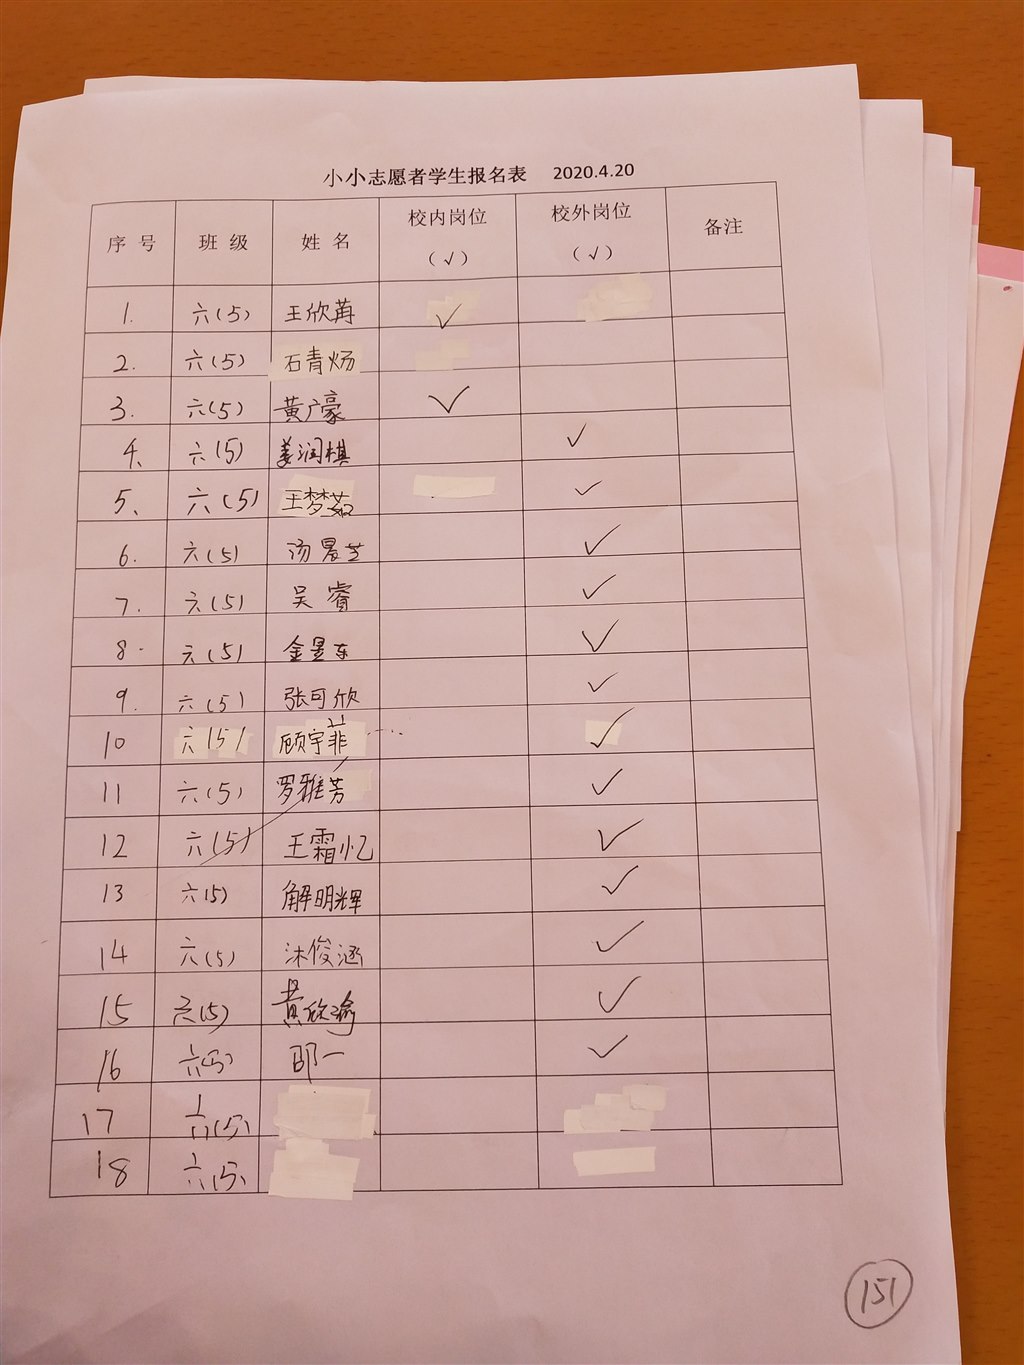 小小志愿者学生报名表 2020.4.20
序号 班级 姓名 校内岗位（√） 校外岗位（√） 备注
1. 六(5) 王欣苒 √
2. 六(5) 石青炀
3. 六(5) 黄广豪 √
4、 六(5) 姜润棋 √
5、 六(5) 王梦茹 √
6. 六(5) 汤景芝 √
7. 六(5) 吴睿 √
8. 六(5) 金昱东 √
9. 六(5) 张可欣 √
10 六(5) 顾宇菲 √
11 六(5) 罗雅芳 √
12 六(5) 王霜忆 √
13 六(5) 解明辉 √
14 六(5) 沐俊涵 √
15 六(5) 黄欣瑜 √
16 六(5) 邵一 √
17 六(5)
18 六(5)
151